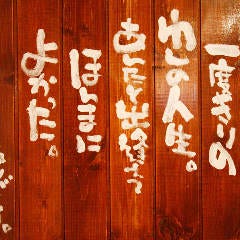 一度きりの
わしの人生。
あんたと出逢って
ほんまに
よかった。